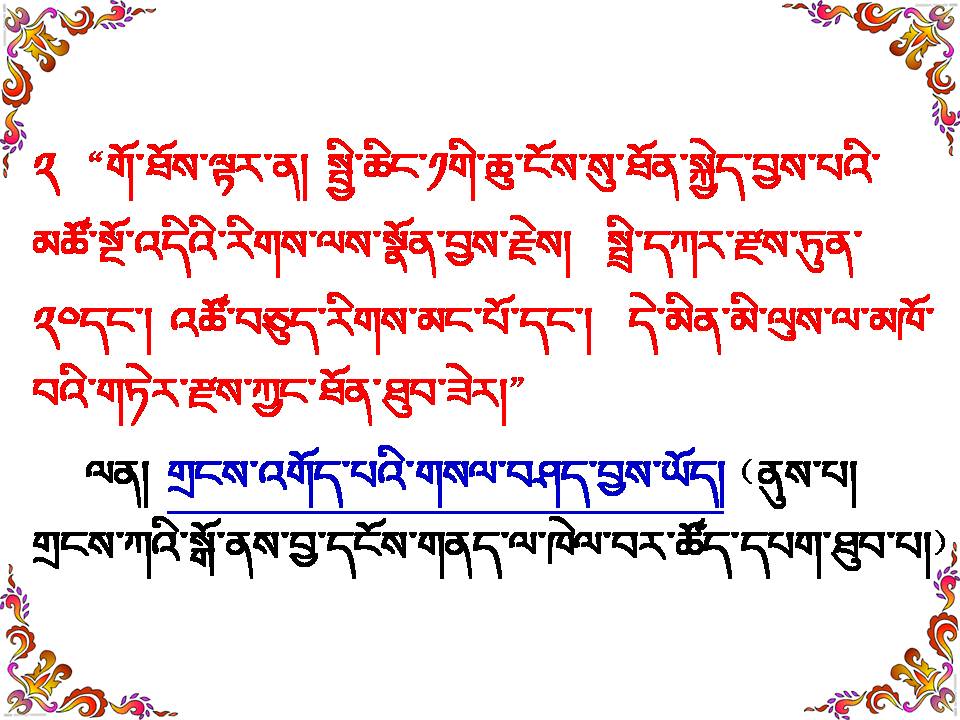 ༢ “གོ་ཐོས་ལྟར་ན། སྤྱི་ཆིང་༡གི་ཆུ་ངོས་སུ་ཐོན་སྐྱེད་བྱས་པའི་
མཚོ་སྔོ་འདིའི་རིགས་ལས་སྣོན་བྱས་རྗེས། སྤྲི་དཀར་རྫས་ཏུན་
༢༠དང་། འཚོ་བཅུད་རིགས་མང་པོ་དང་། དེ་མིན་མི་ལུས་ལ་མཁོ་
བའི་གཏེར་རྫས་ཀྱང་ཐོན་ཐུབ་ཟེར།”
ལན། གྲངས་འགོད་པའི་གསལ་བཤད་བྱས་ཡོད། (ནུས་པ།
གྲངས་ཀའི་སྒོ་ནས་བྱ་དངོས་གནད་ལ་ཁེལ་བར་ཚོད་དཔག་ཐུབ་པ།)